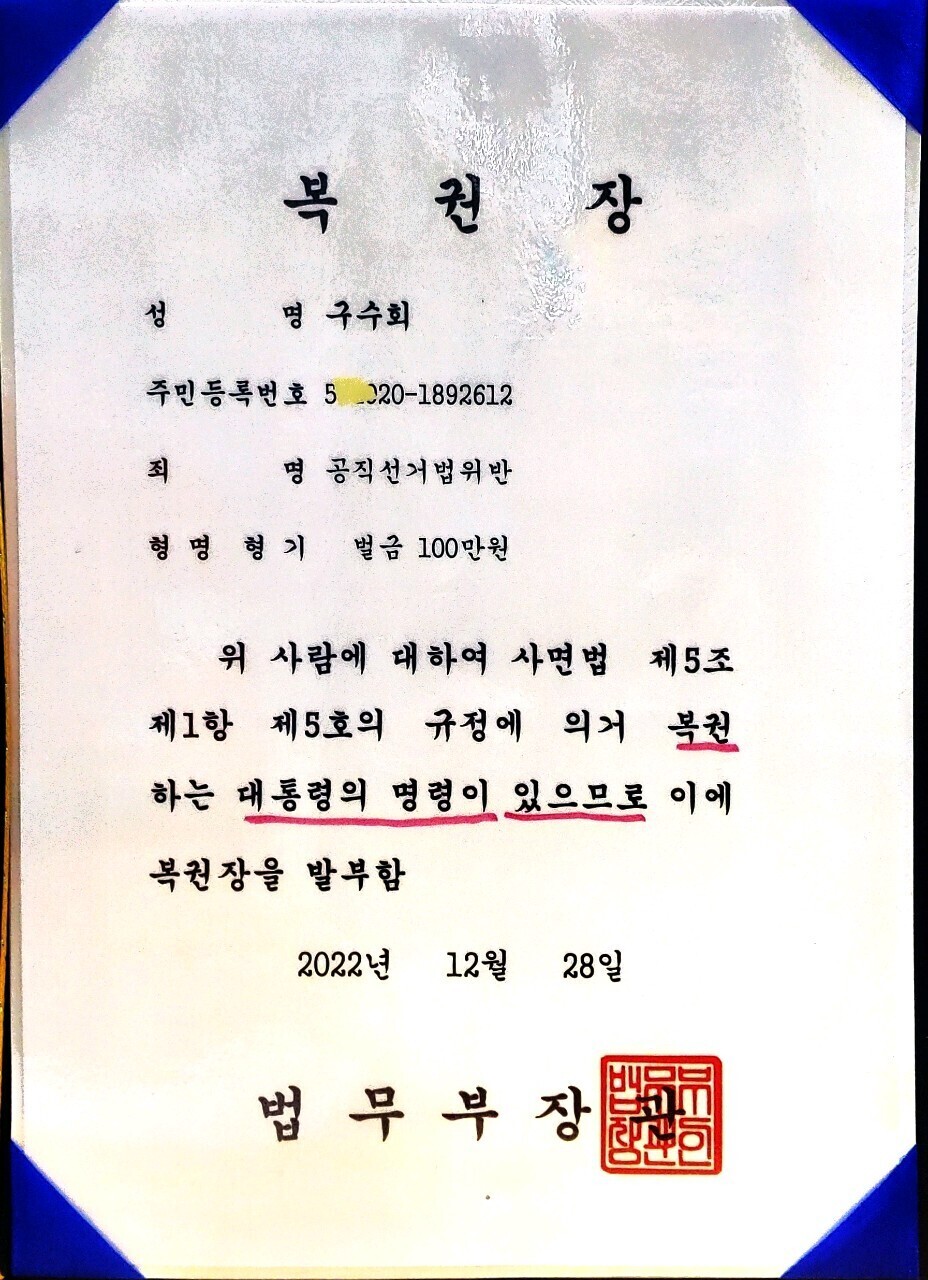 복 권 장
성 명 구수회
주민등록번호 5 020-1892612
죄 명 공직선거법위반
형 명 형 기 벌금 100만원
위 사람에 대하여 사면법 제5조
제1항 제5호의 규정에 의거 복권
하는 대통령의 명령이 있으므로 이에
복권장을 발부함
2022년 12월 28일
법 무 부 장 관